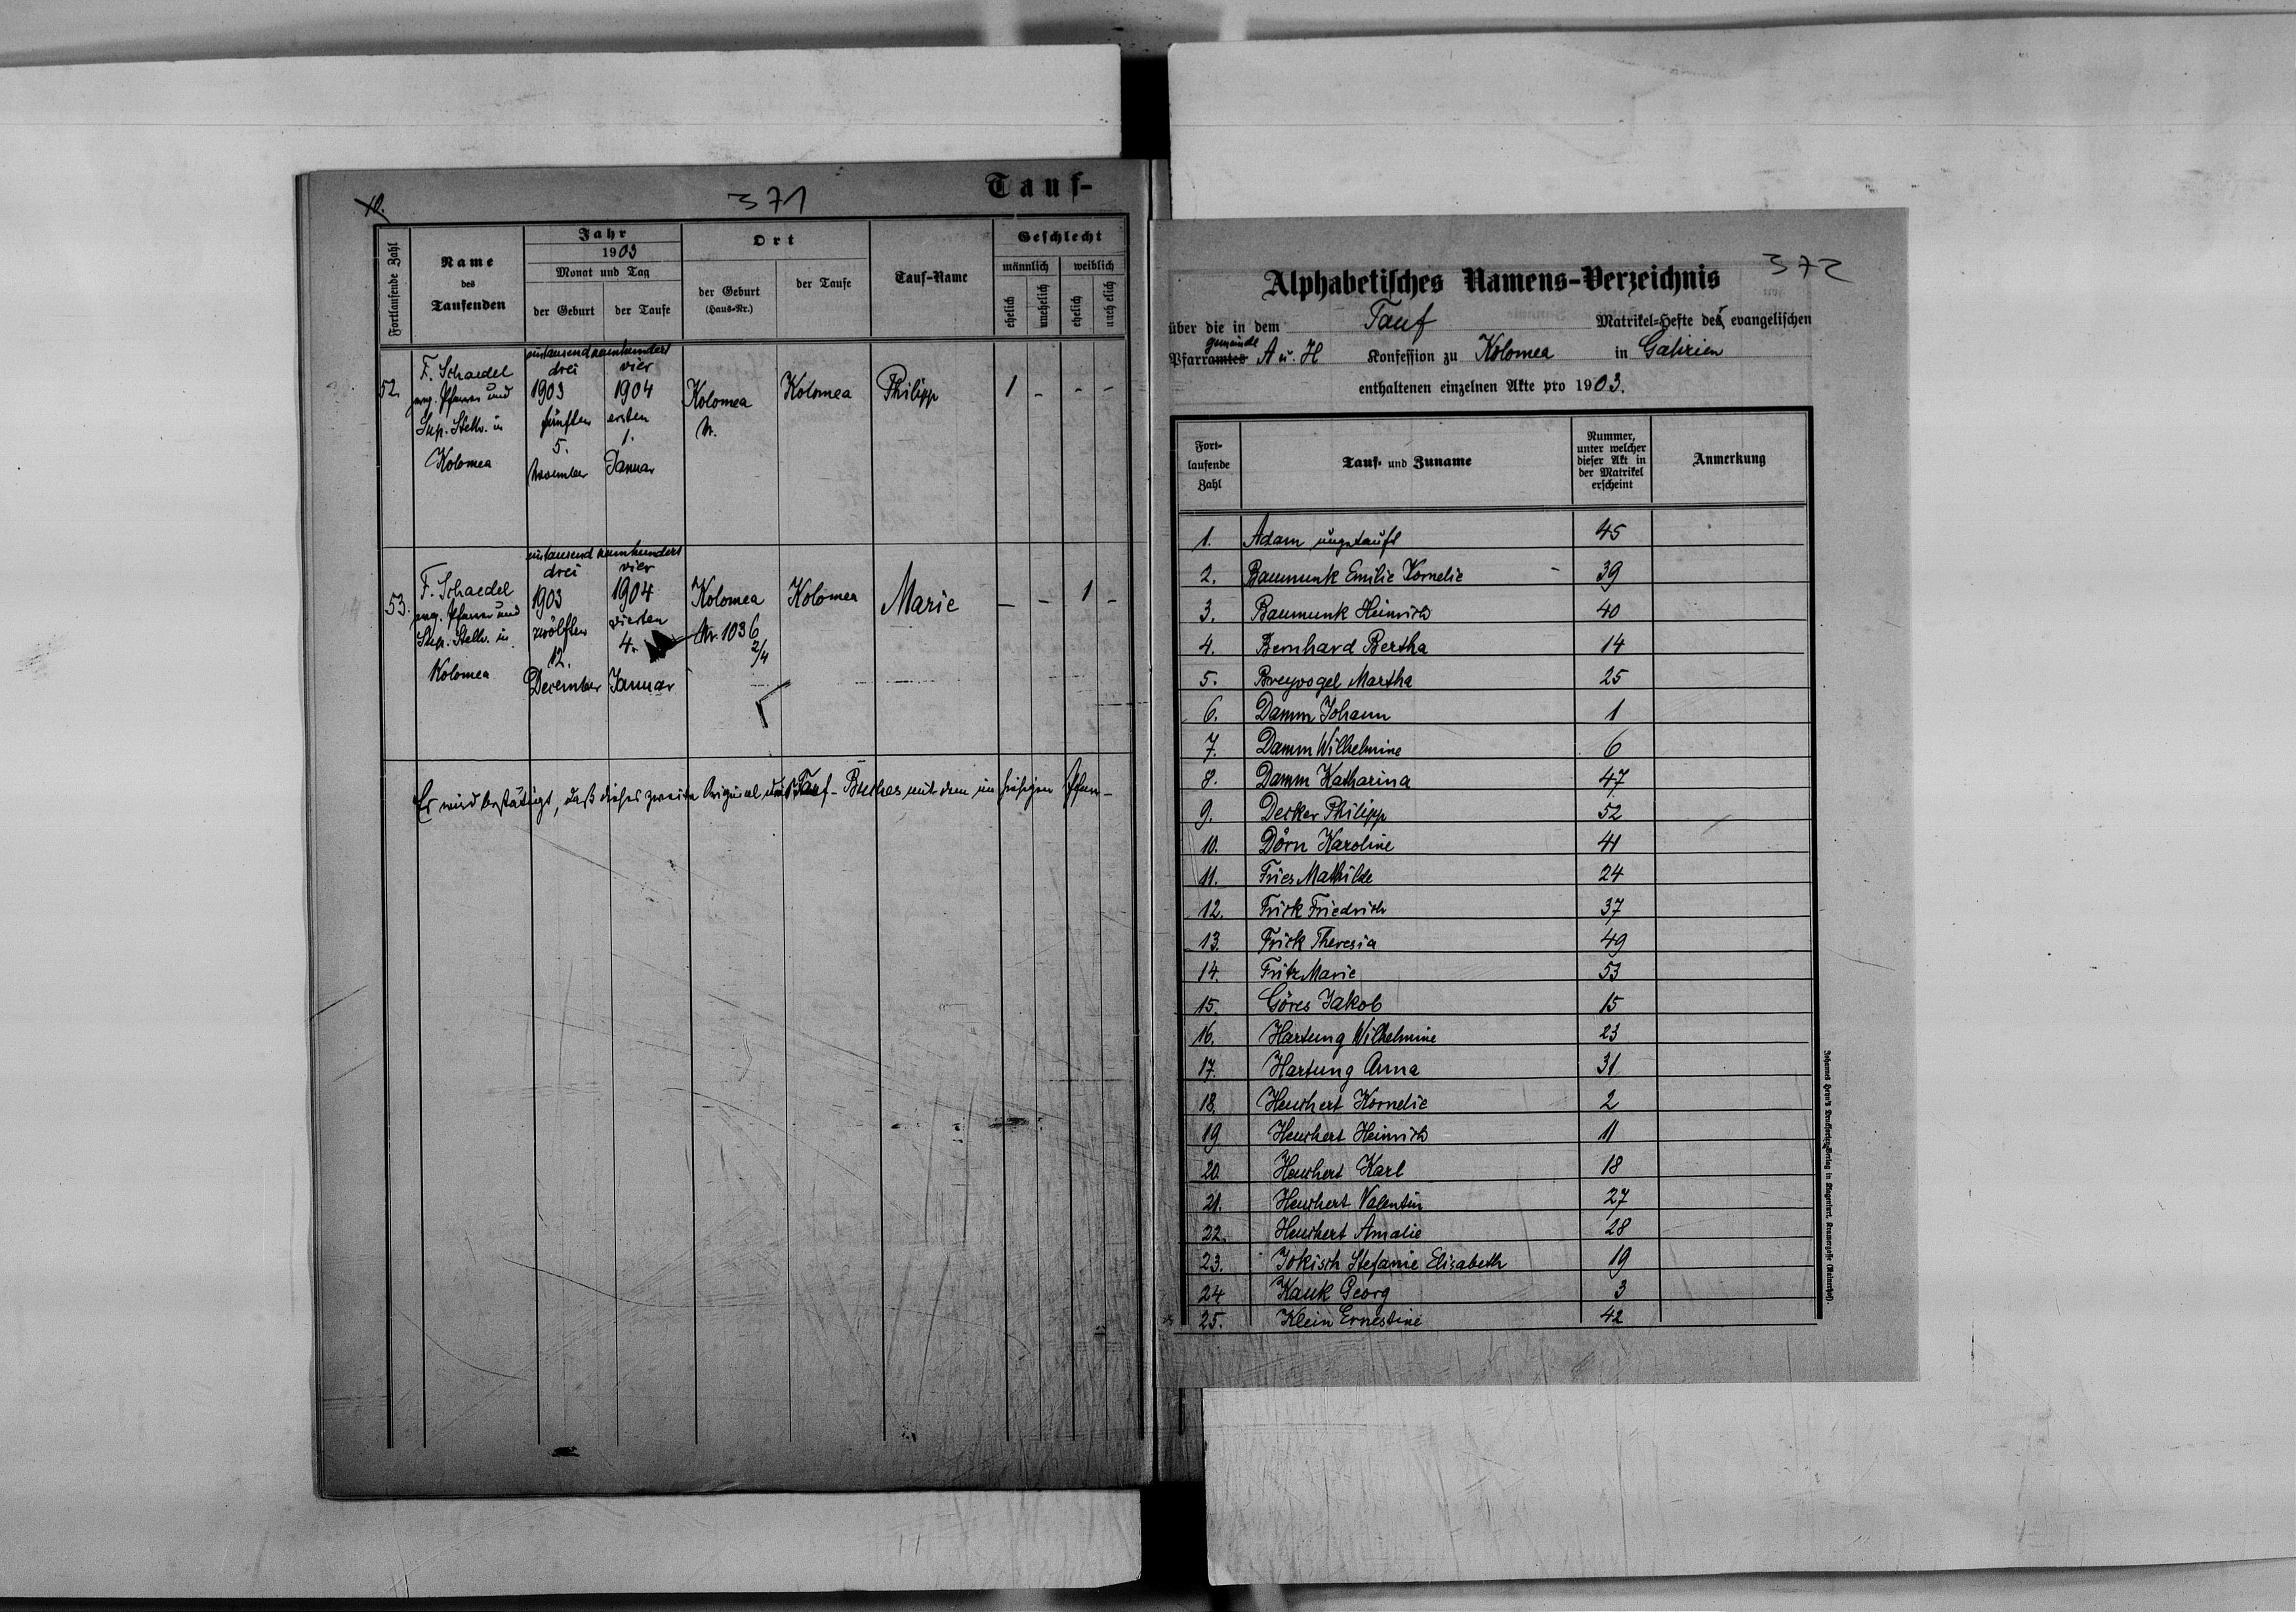 10.
371
Tauf-
Fortlaufende Zahl
Name
des
Taufenden
Jahr
1903
Monat und Tag
der Geburt
der Taufe
Ort
der Geburt
(Haus-Nr.)
der Taufe
Tauf-Name
Geschlecht
männlich
weiblich
ehelich
unehelich
ehelich
unehelich
52.
F. Schaedel
evng. Pfarrer und
Sup. Stellv. in
Kolomea
eintausendneunhundert
drei
1903
fünften
5.
November
vier
1904
ersten
1.
Januar
Kolomea
Nr.
Kolomea
Philipp
1 - - -
53.
F. Schaedel
evng. Pfarrer und
Sup. Stellv. in
Kolomea
eintausend neunhundert
drei
1903
zwölften
12.
December
vier
1904
vierten
4.
Januar
Kolomea
Nr. 1036
2/4
Kolomea
Marie
- - 1 -
Es wird bestätigt, daß dieses zweite Original des Tauf-Buches mit dem im hiesigen Pfarr-
372
Alphabetisches Namens-Verzeichnis
über die in dem Tauf Matrikel-Hefte der evangelischen
gemeinde
Pfarramtes A u. H Konfession zu Kolomea in Galizien
enthaltenen einzelnen Akte pro 1903.
Fort-
laufende
Zahl
Tauf- und Zuname
Nummer,
unter welcher
dieser Akt in
der Matrikel
erscheint
Anmerkung
1. Adam ungetauft 45
2. Baumunk Emilie Kornelie - 39
3. Baumunk Heinrich 40
4. Bernhard Bertha 14
5. Breyvogel Martha 25
6. Damm Johann 1
7. Damm Wilhelmine 6
8. Damm Katharina 47
9. Decker Philipp 52
10. Dörn Karoline 41
11. Fries Mathilde 24
12. Frick Friedrich 37
13. Frick Theresia 49
14. Fritz Marie 53
15. Göres Jakob 15
16. Hartung Wilhelmine 23
17. Hartung Anna 31
18. Heuchert Kornelie 2
19 Heuchert Heinrich 11
20. Heuchert Karl 18
21. Heuchert Valentin 27
22. Heuchert Amalie 28
23. Jokisch Stefanie Elisabeth 19
24 Kauk Georg 3
25. Klein Ernestine 42
Johannes Heyn's Drucksorten-Verlag in Klagenfurt, Kramergasse (Rainerhof).